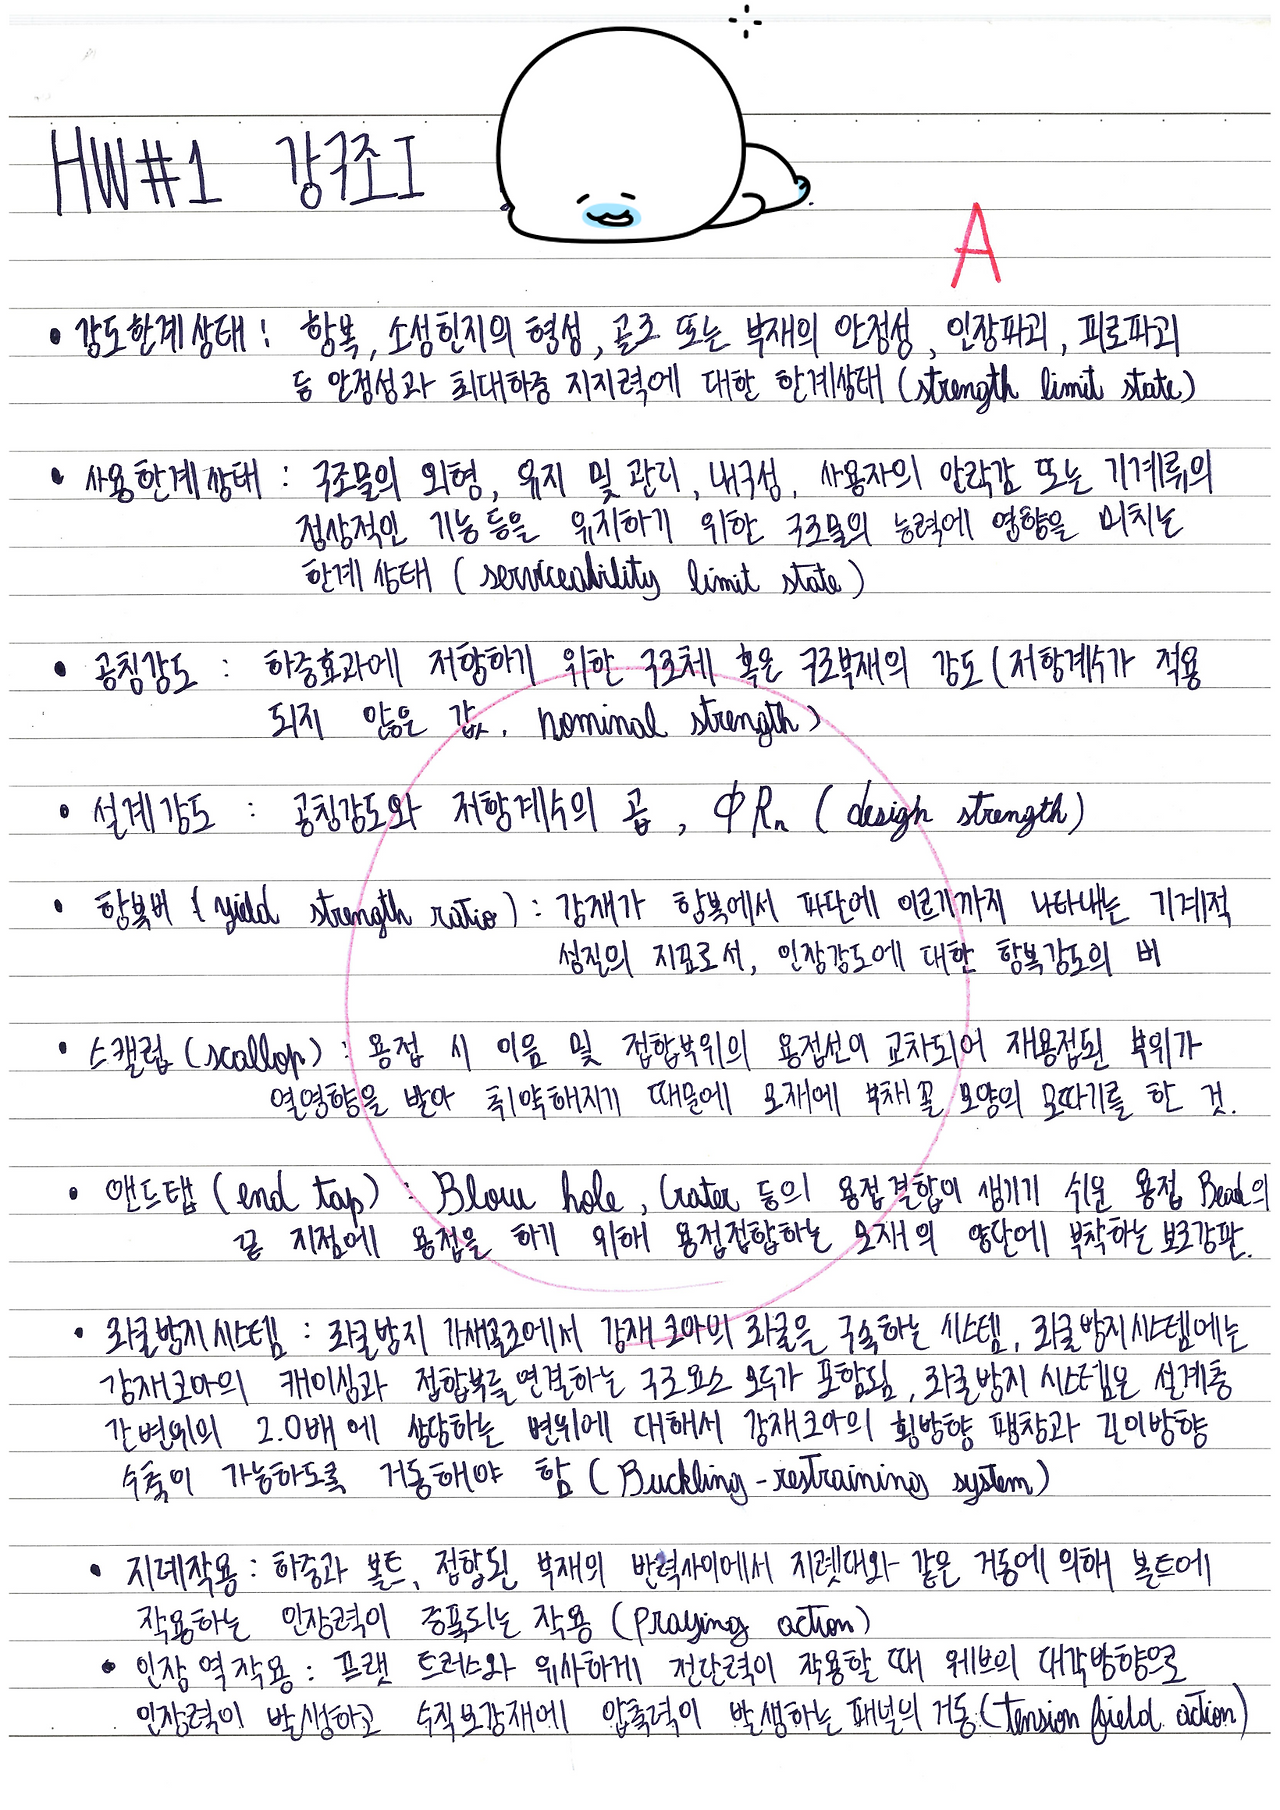 HW#1 강구조I
A
• 강도한계상태 : 항복, 소성힌지의 형성, 골조 또는 부재의 안정성, 인장파괴, 피로파괴
등 안정성과 최대하중 지지력에 대한 한계상태 (strength limit state)
• 사용한계상태 : 구조물의 외형, 유지 및 관리, 내구성, 사용자의 안락감 또는 기계류의
정상적인 기능 등을 유지하기 위한 구조물의 능력에 영향을 미치는
한계상태 (serviceability limit state)
• 공칭강도 : 하중효과에 저항하기 위한 구조체 혹은 구조부재의 강도 (저항계수가 적용
되지 않은 값, nominal strength)
• 설계강도 : 공칭강도와 저항계수의 곱, ΦRn (design strength)
• 항복비 (yield strength ratio) : 강재가 항복에서 파단에 이르기까지 나타내는 기계적
성질의 지표로서, 인장강도에 대한 항복강도의 비
• 스캘럽 (scallop) : 용접 시 이음 및 접합부위의 용접선이 교차되어 재용접된 부위가
열영향을 받아 취약해지기 때문에 모재에 부채꼴 모양의 모따기를 한 것.
• 앤드탭 (end tap) : Blow hole, Crater 등의 용접결함이 생기기 쉬운 용접 Bead의
끝 지점에 용접을 하기 위해 용접접합하는 모재의 양단에 부착하는 보조강판.
• 좌굴방지시스템 : 좌굴방지 가새골조에서 강재코아의 좌굴을 구속하는 시스템, 좌굴방지시스템에는
강재코아의 케이싱과 접합부를 연결하는 구조요소 모두가 포함됨, 좌굴방지 시스템은 설계층
간변위의 2.0배에 상당하는 변위에 대해서 강재코아의 횡방향 팽창과 길이방향
수축이 가능하도록 거동해야 함 (Buckling-restraining system)
• 지레작용 : 하중과 볼트, 접합된 부재의 반력사이에서 지렛대와 같은 거동에 의해 볼트에
작용하는 인장력이 증폭되는 작용 (praying action)
• 인장역작용 : 프랫 트러스와 유사하게 전단력이 작용할 때 웨브의 대각방향으로
인장력이 발생하고 수직보강재에 압축력이 발생하는 패널의 거동 (tension field action)